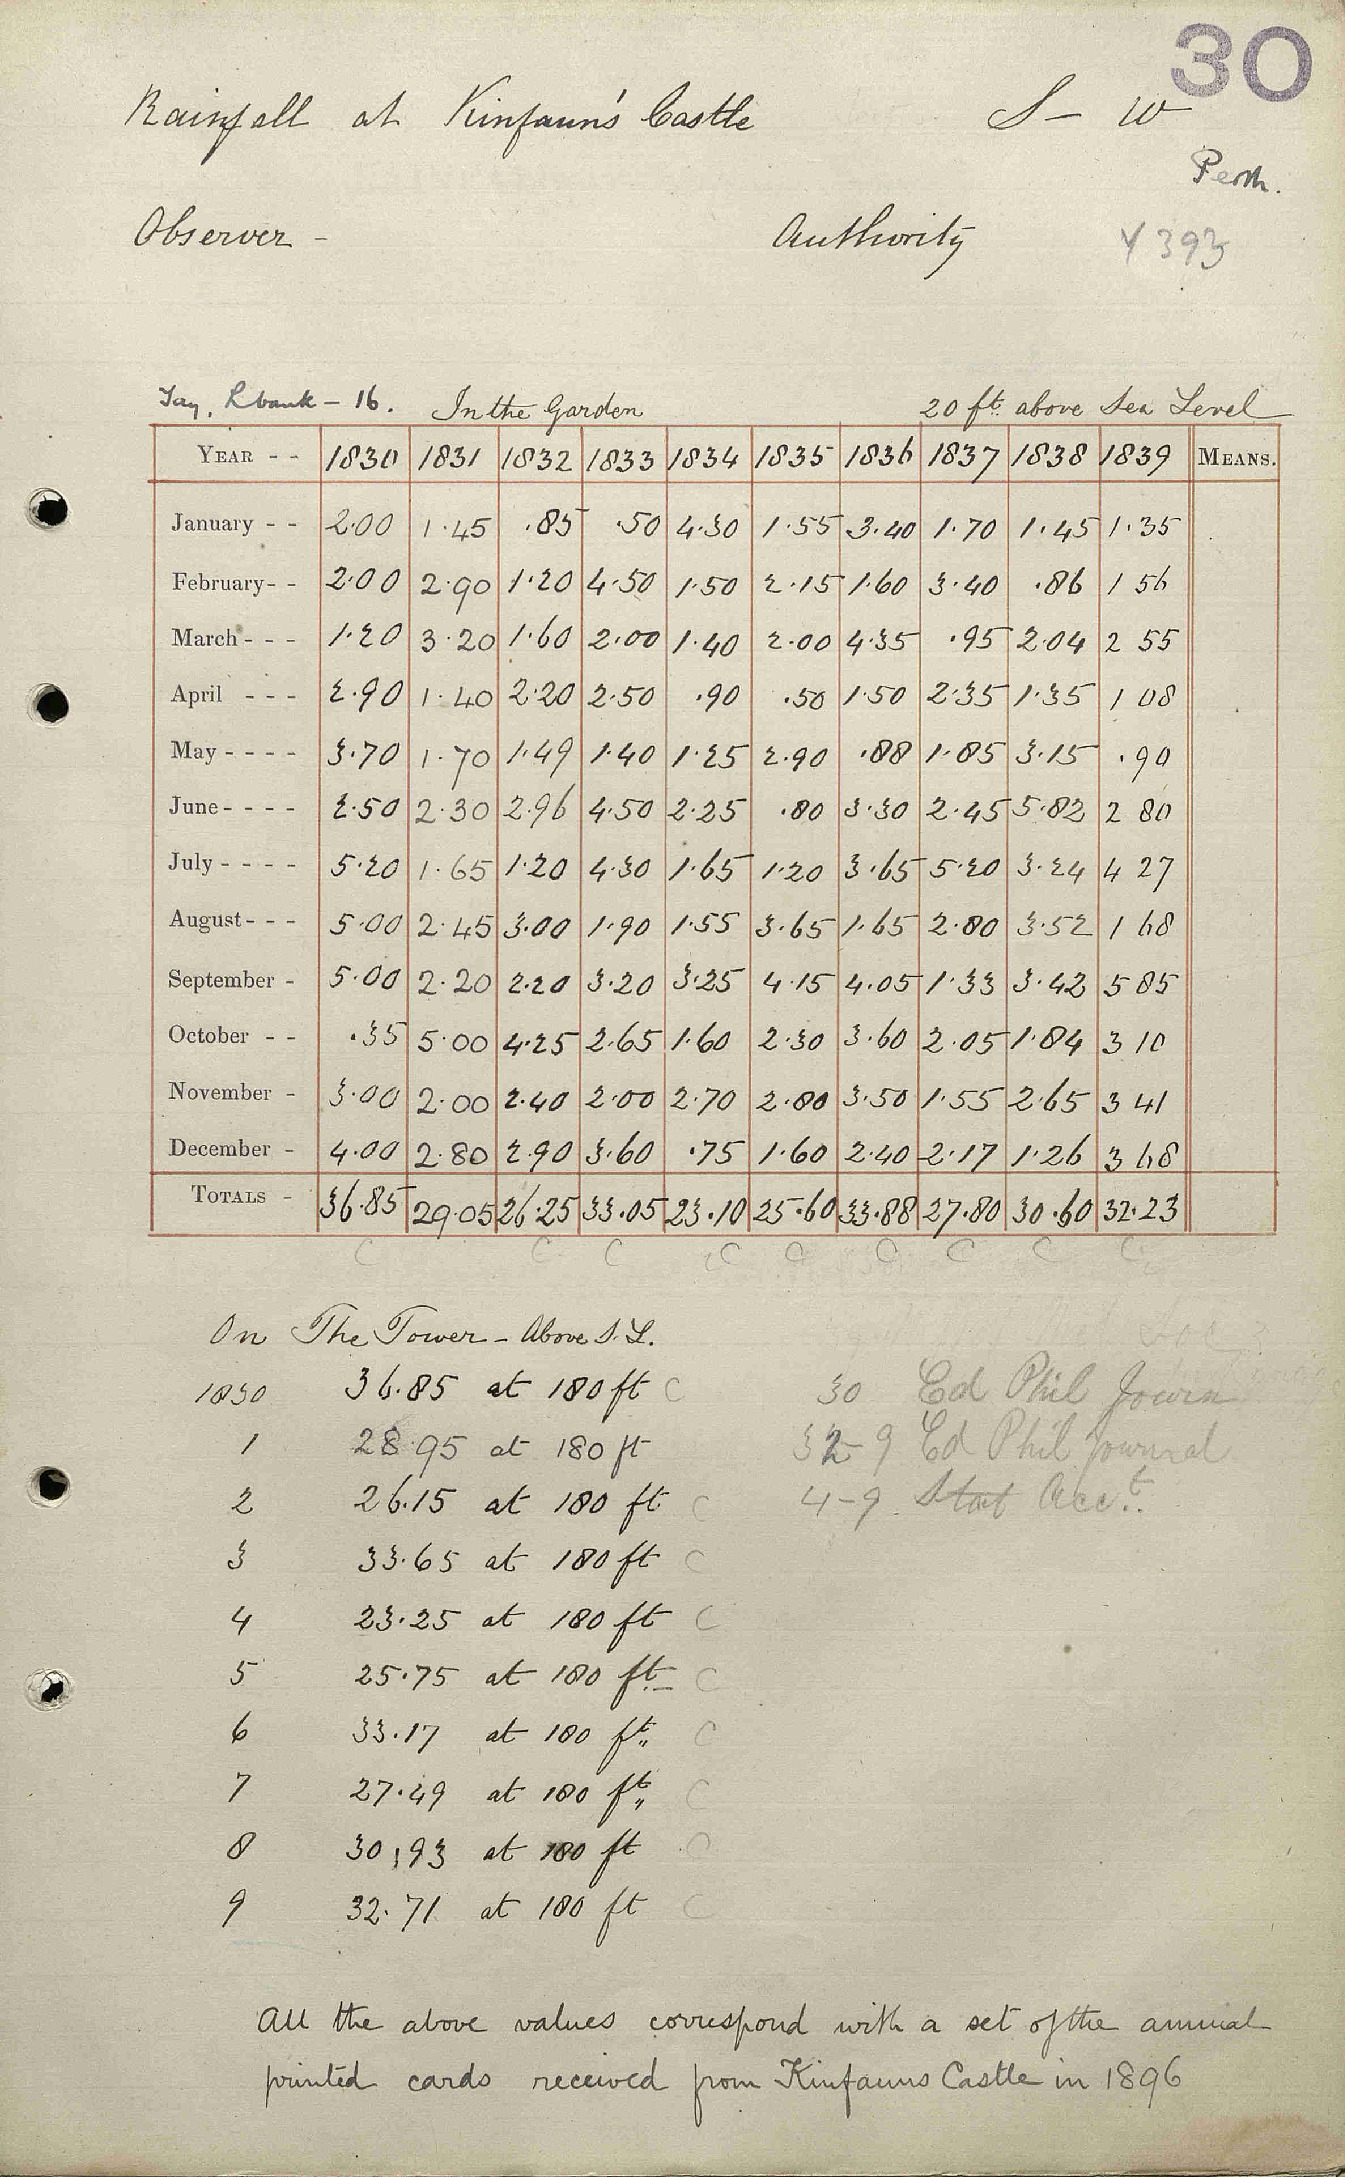 30
Rainfall at Kinfaun's Castle S - W
Perth.
Observer - Authority Y 393
Tay, R bank - 16. In the Garden 20 ft above Sea Level
YEAR - - 1830 1831 1832 1833 1834 1835 1836 1837 1838 1839 MEANS.
January - - 2.00 1.45 .85 .50 4.30 1.55 3.40 1.70 1.45 1.35
February - - 2.00 2.90 1.20 4.50 1.50 2.15 1.60 3.40 .86 1 56
March - - - 1.20 3.20 1.60 2.00 1.40 2.00 4.35 .95 2.04 2 55
April - - - 2.90 1.40 2.20 2.50 .90 .50 1.50 2.35 1.35 1 08
May - - - - 3.70 1.70 1.49 1.40 1.25 2.90 .88 1.85 3.15 .90
June - - - - 2.50 2.30 2.96 4.50 2.25 .80 3.30 2.45 5.82 2 80
July - - - - 5.20 1.65 1.20 4.30 1.65 1.20 3.65 5.20 3.24 4 27
August - - - 5.00 2.45 3.00 1.90 1.55 3.65 1.65 2.80 3.52 1 68
September - 5.00 2.20 2.20 3.20 3.25 4.15 4.05 1.33 3.42 5 85
October - - .35 5.00 4.25 2.65 1.60 2.30 3.60 2.05 1.84 3 10
November - 3.00 2.00 2.40 2.00 2.70 2.80 3.50 1.55 2.65 3 41
December - 4.00 2.80 2.90 3.60 .75 1.60 2.40 2.17 1.26 3 68
TOTALS - 36.85 29.05 26.25 33.05 23.10 25.60 33.88 27.80 30.60 32.23
C C C C C C C C C
On The Tower - Above S.L.
1830 36.85 at 180 ft C 30 Ed Phil Journ
1 28.95 at 180 ft 32-9 Ed Phil Journal
2 26.15 at 180 ft C 4-9. Stat Acct.
3 33.65 at 180 ft C
4 23.25 at 180 ft C
5 25.75 at 180 ft C
6 33.17 at 180 ft C
7 27.49 at 180 ft C
8 30.93 at 180 ft C
9 32.71 at 180 ft C
All the above values correspond with a set of the annual
printed cards received from Kinfauns Castle in 1896